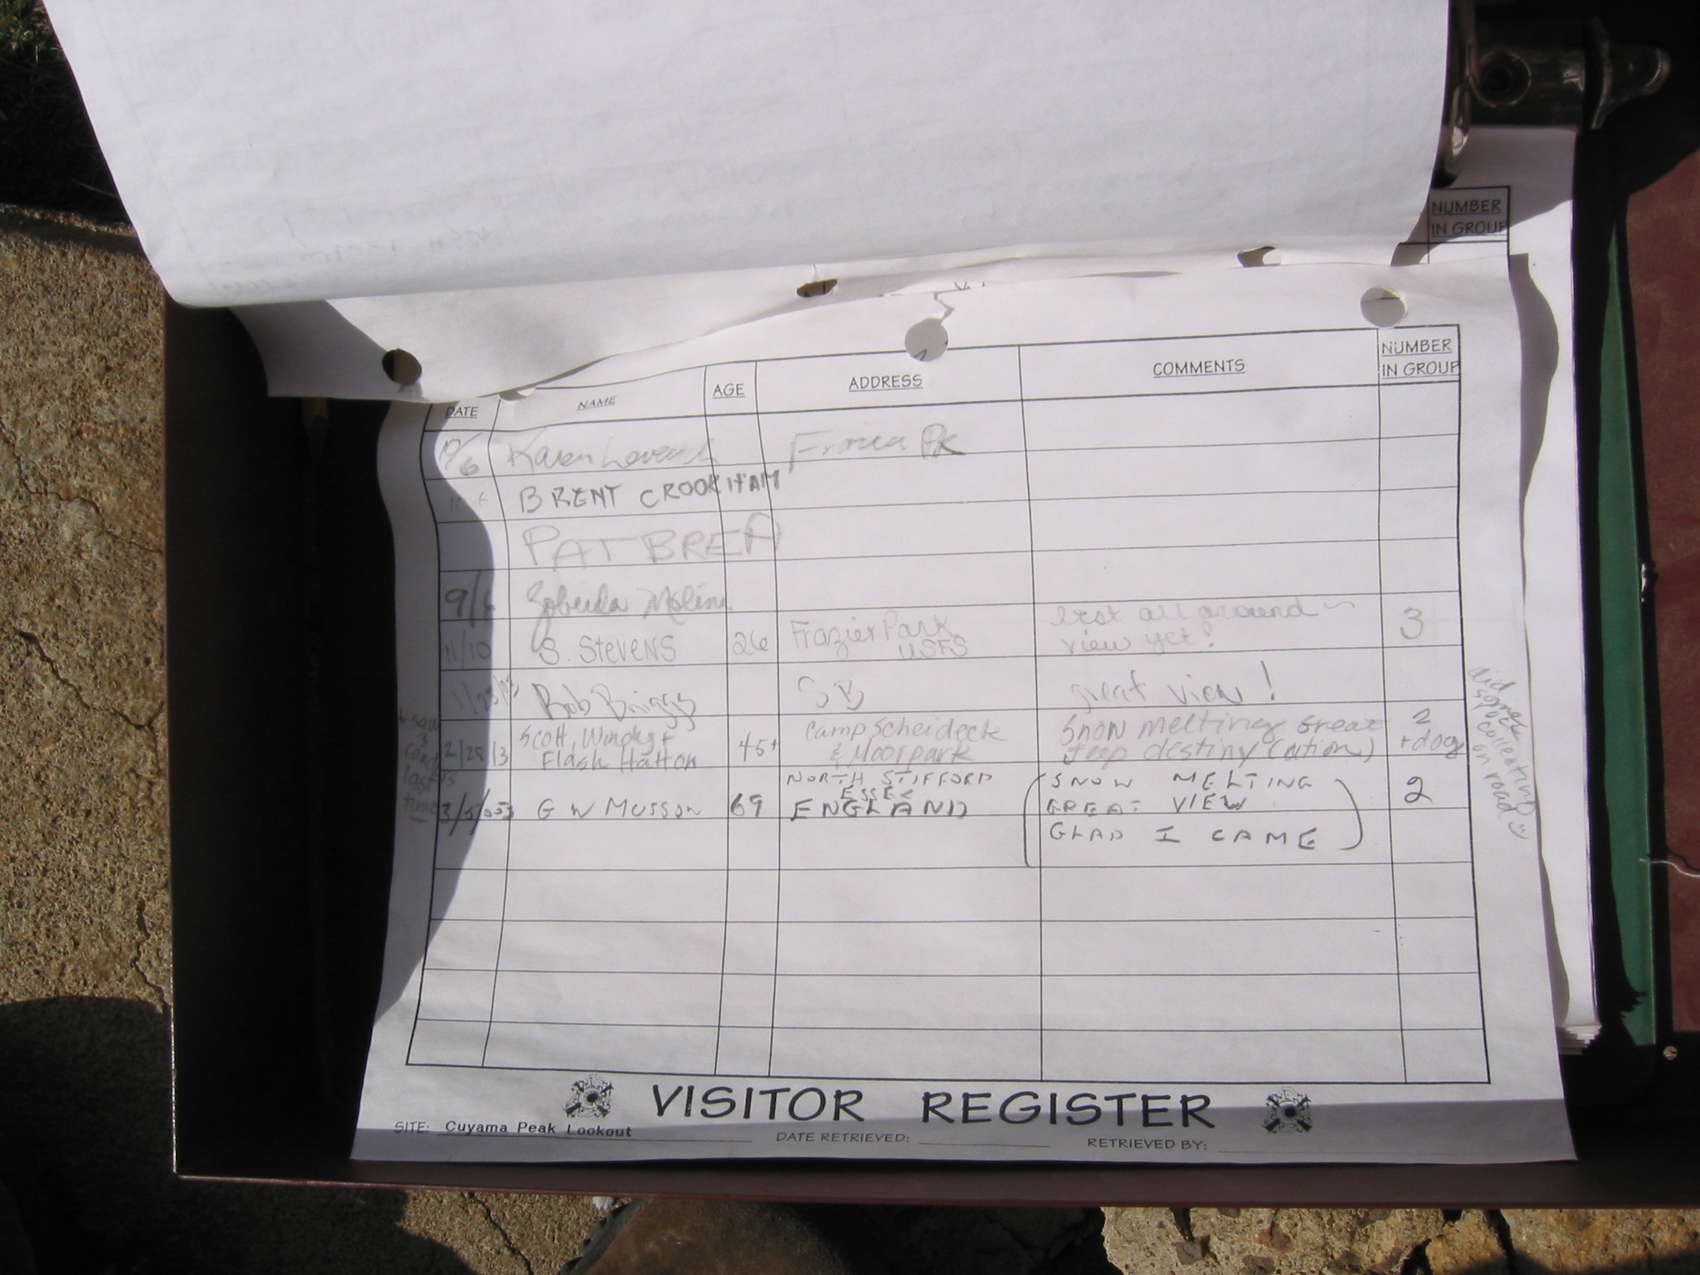 NUMBER
IN GROUP
DATE NAME AGE ADDRESS COMMENTS NUMBER
IN GROUP
Karen Pk
BRENT CROOKHAM
PAT BREA
9/6 Molina
11/10 S. Stevens 26 Frazier Park
USFS best all around
view yet! 3
Bob Briggs SB great view!
2/28/3 Scott, Wendy +
Flash Hatton 45+ Camp Scheideck
& Moorpark Snow melting Great
Jeep destiny (ation) 2
+ dog
G W Musson 69 NORTH STIFFORD
ESSEX
ENGLAND (SNOW MELTING
GREAT VIEW
GLAD I CAME) 2
I saw
3
last
time
did
some
collecting
on road
VISITOR REGISTER
SITE: Cuyama Peak Lookout DATE RETRIEVED: RETRIEVED BY: